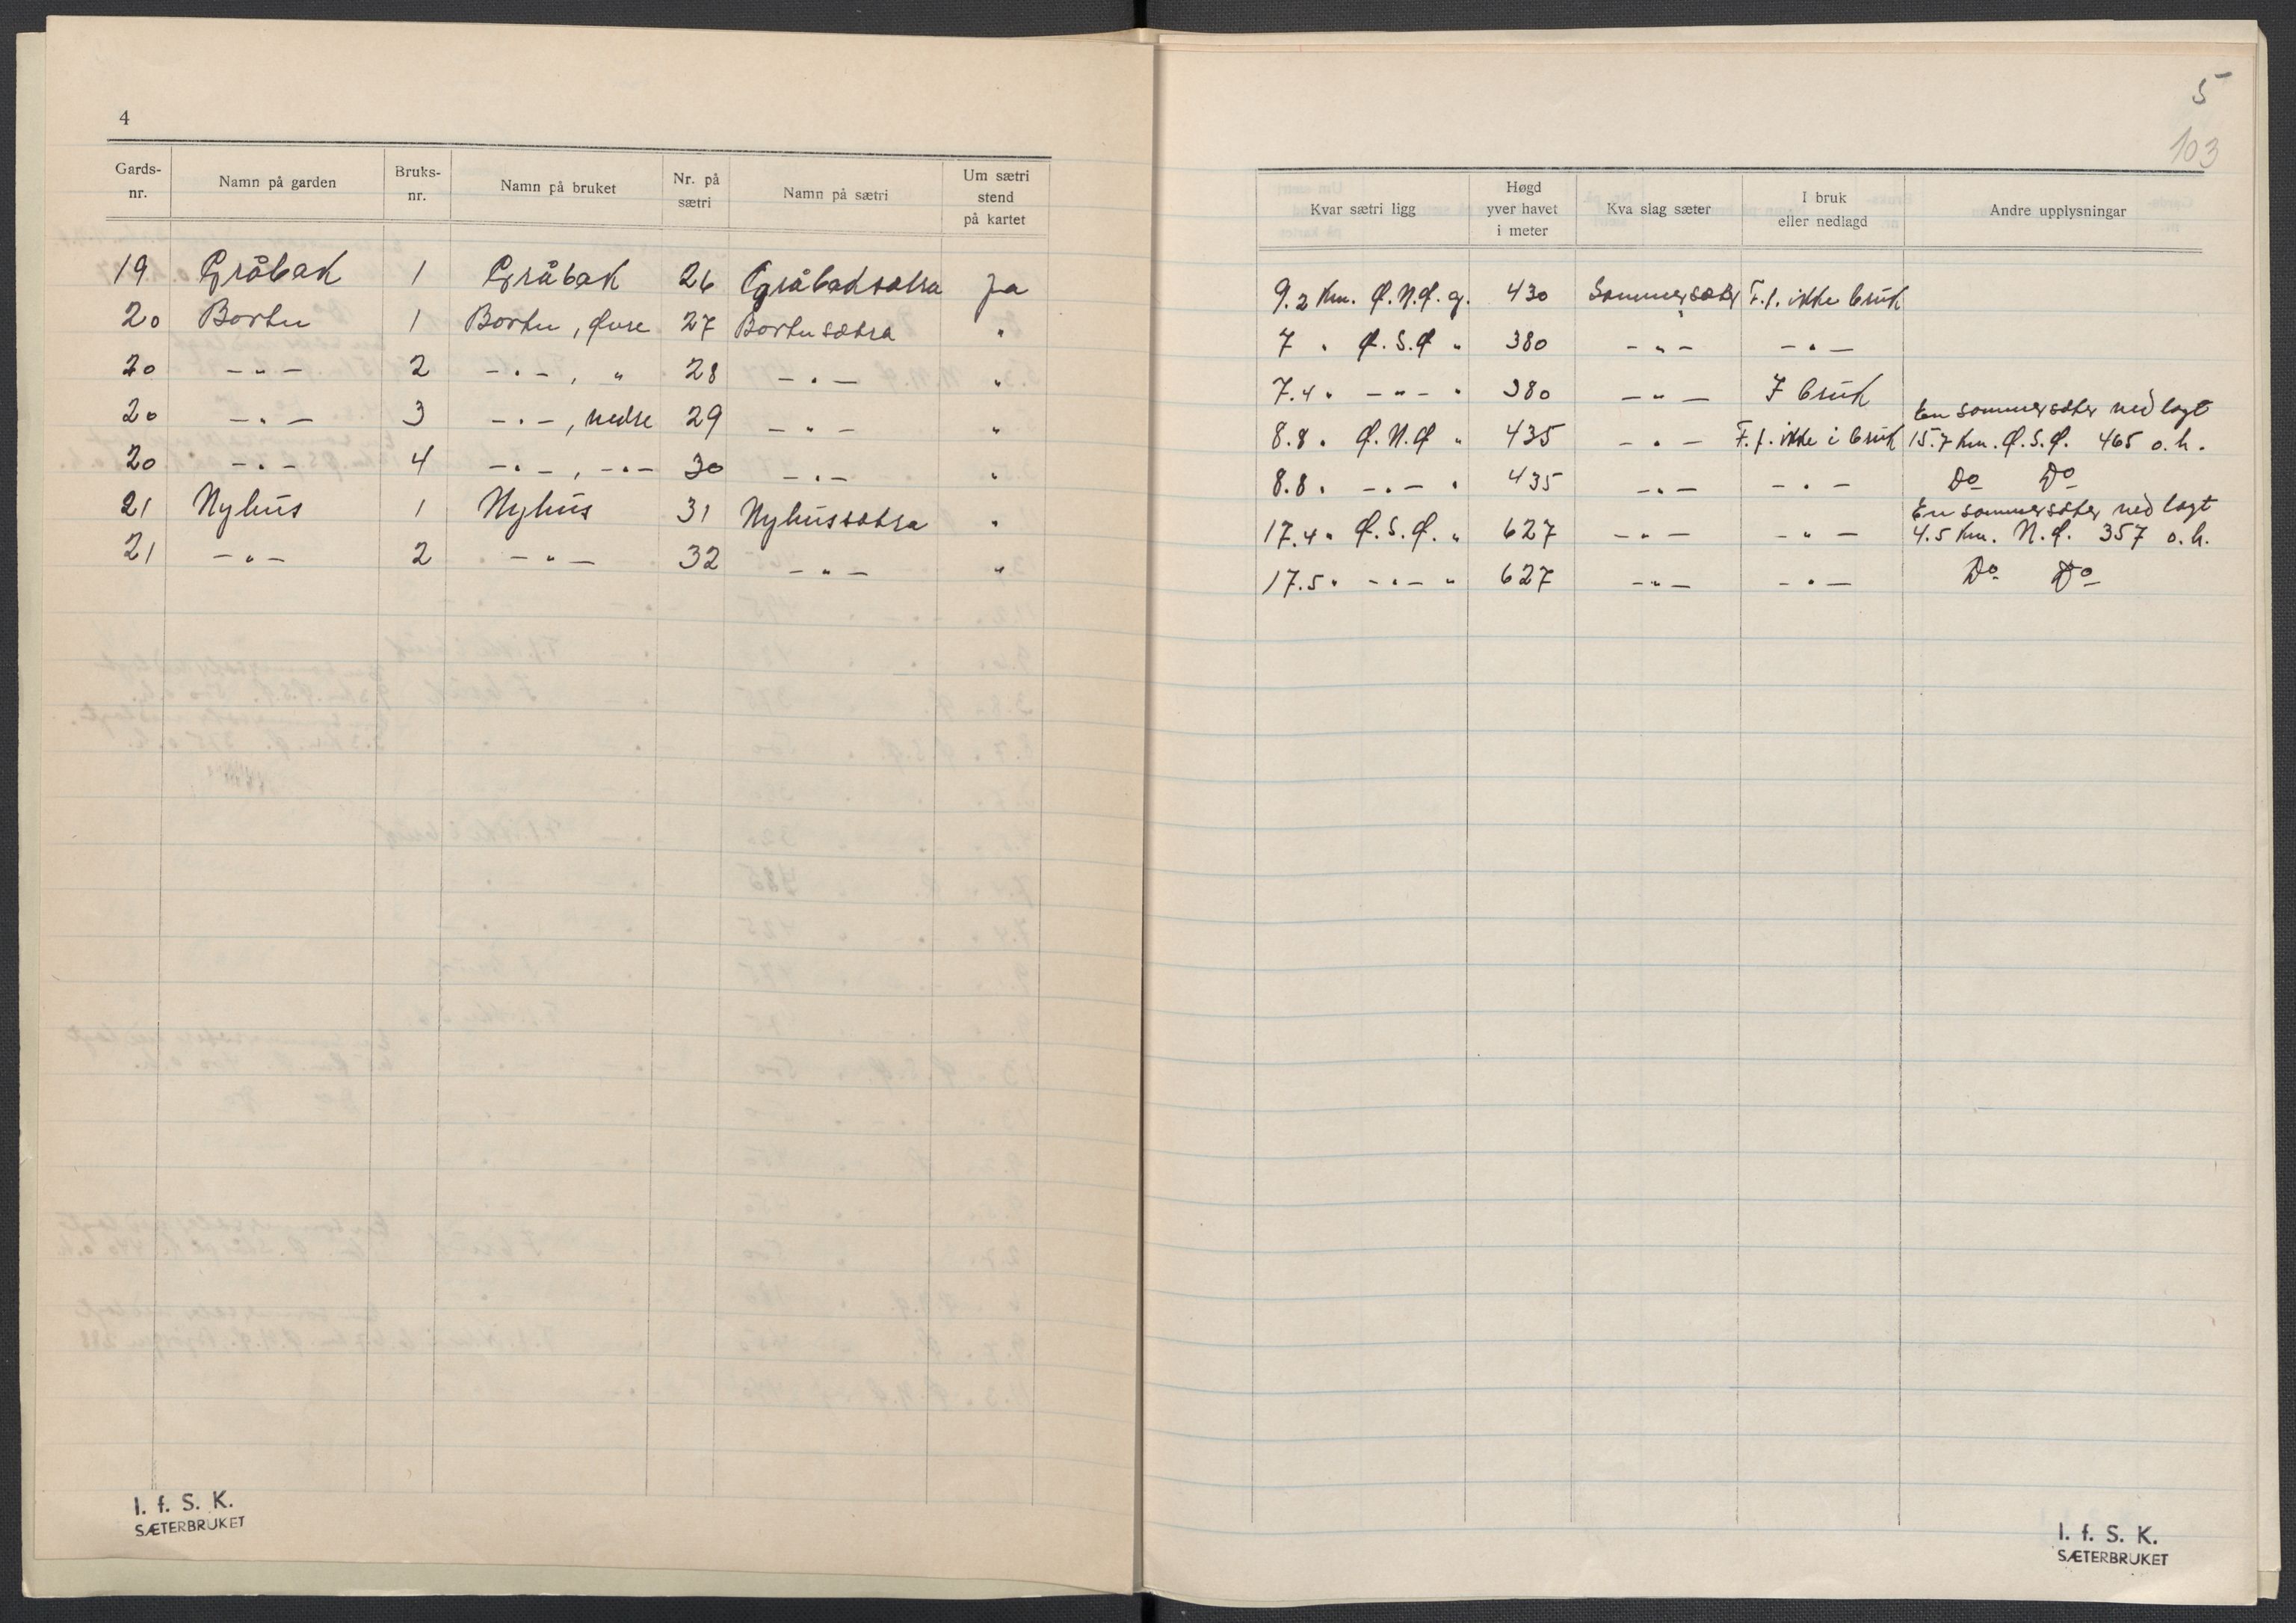 4
Gards-nr. Namn på garden Bruks-nr. Namn på bruket Nr. på sætri Namn på sætri Um sætri stend på kartet
19 Gråbak 1 Gråbak 26 Gråbaksætra Ja
20 Bortu 1 Bortu, øvre 27 Bortusætra "
20 -"- 2 -"-, " 28 -"- "
20 -"- 3 -"-, nedre 29 -"- "
20 -"- 4 -"-, -"- 30 -"- "
21 Nyhus 1 Nyhus 31 Nyhussætra "
21 -"- 2 -"- 32 -"- "
I. f. S. K.
SÆTERBRUKET
5
103
Kvar sætri ligg Høgd yver havet i meter Kva slag sæter I bruk eller nedlagd Andre upplysningar
9.2 km. Ø.N.Ø. g. 430 Sommersæter F.t. ikke bruk
7 " Ø.S.Ø " 380 -"- -"-
7.4 " -"- " 380 -"- I bruk
En sommersæter nedlagt
8.8 " Ø.N.Ø " 435 -"- F.t. ikke i bruk 15.7 km. Ø.S.Ø. 465 o.h.
8.8 " -"- " 435 -"- -"- Do Do
En sommersæter nedlagt
17.4 " Ø.S.Ø. " 627 -"- -"- 4.5 km. N.Ø. 357 o.h.
17.5 " -"- " 627 -"- -"- Do Do
I. f. S. K.
SÆTERBRUKET